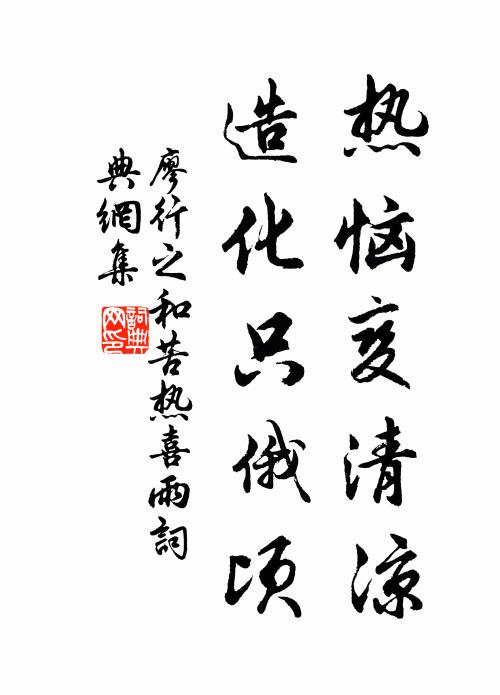 热恼变清凉
造化只俄顷
廖行之和苦热喜雨詞
典網集
詞典网印